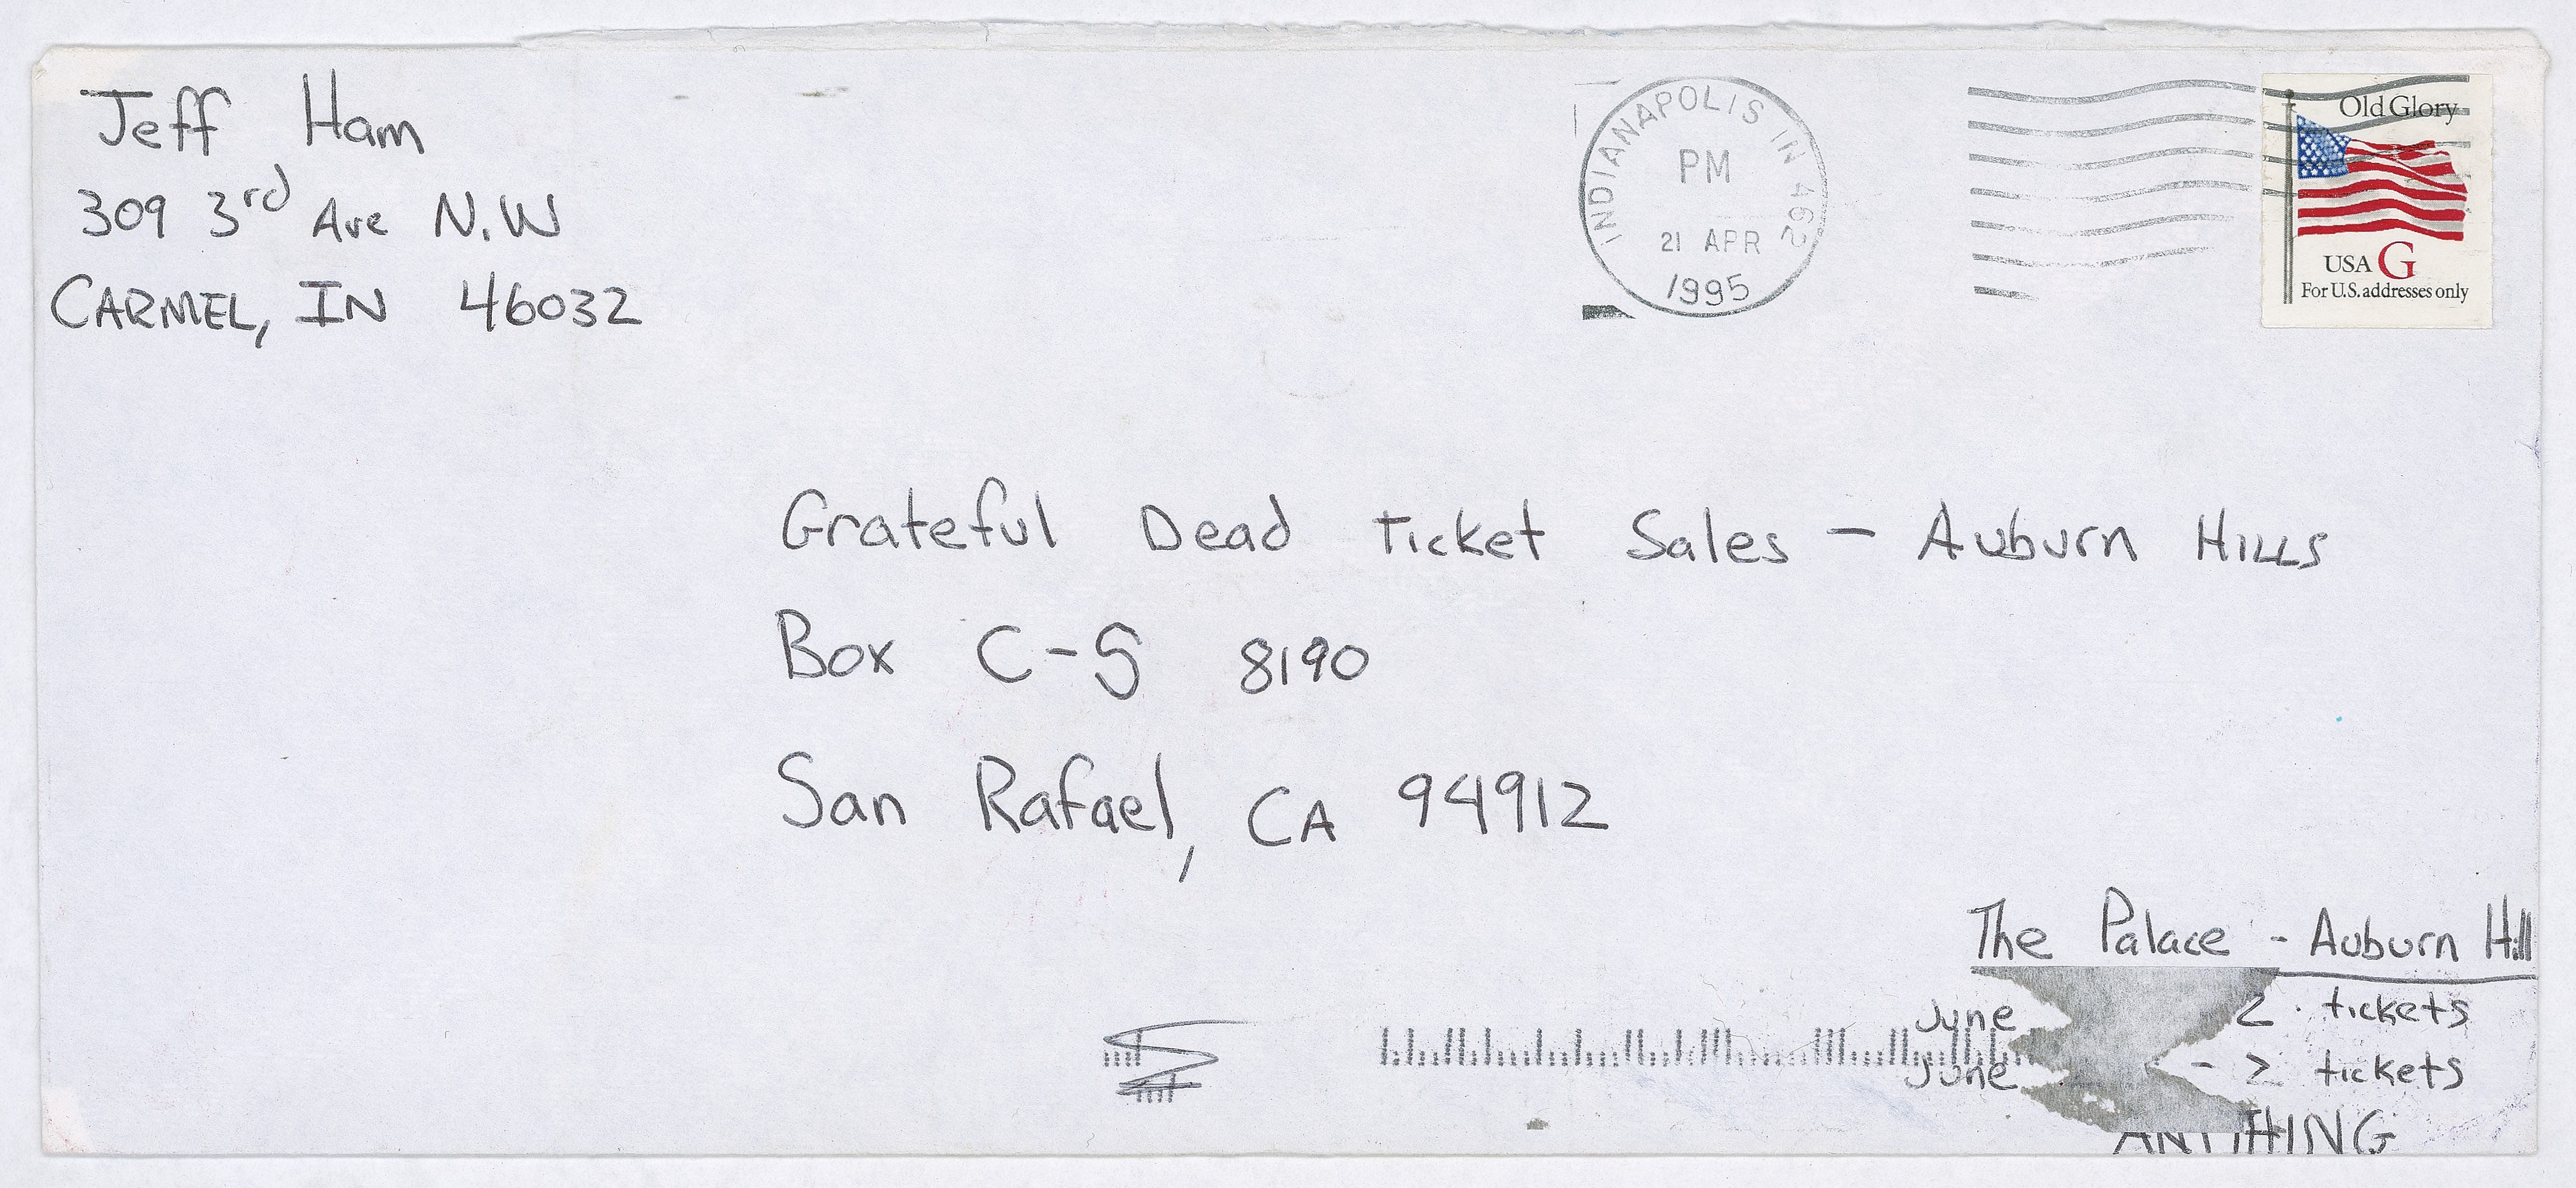 Jeff Ham
309 3rd Ave N.W
CARMEL, IN 46032
INDIANAPOLIS IN 462
PM
21 APR
1995
Old Glory
USA G
For U.S. addresses only
Grateful Dead Ticket Sales - Auburn Hills
Box C-S 8190
San Rafael, CA 94912
The Palace - Auburn Hill
June 2 tickets
June - 2 tickets
ANYTHING